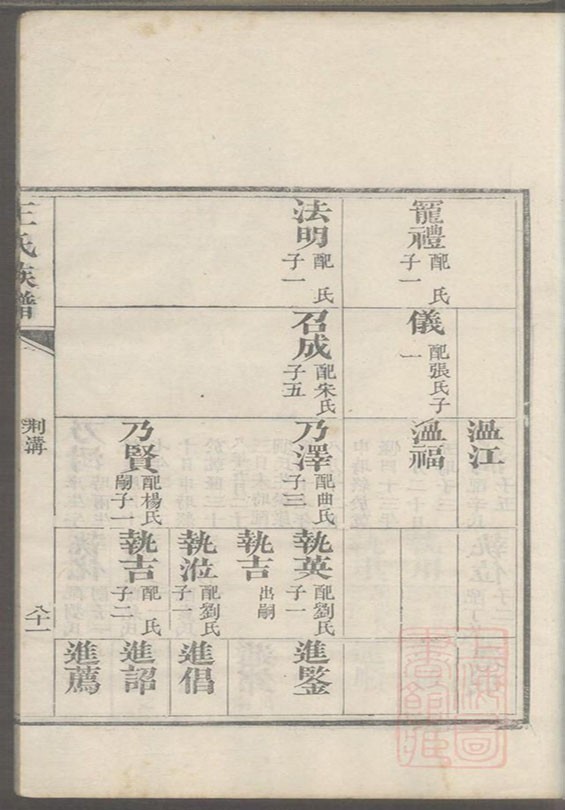 寵禮 配 氏 子一
儀 配張氏子一
溫江
溫福
法明 配 氏 子一
召成 配宋氏 子五
乃澤 配曲氏 子三
執英 配劉氏 子一
進鑒
執吉 出嗣
執涖 配劉氏 子一
進倡
乃賢 配楊氏 嗣子一
執吉 配 氏 子二
進詔
進薦
王氏族譜
荆溝
八十一